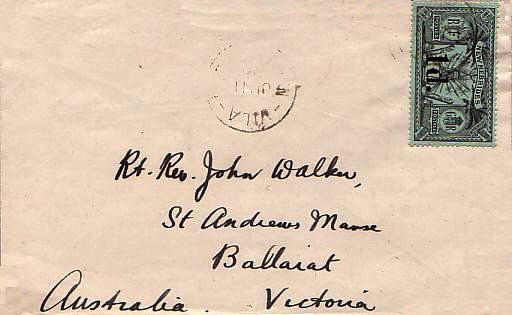 1d.
NEW HEBRIDES
VILA
Rt. Rev. John Walker,
St Andrews Manse
Ballarat
Australia. Victoria